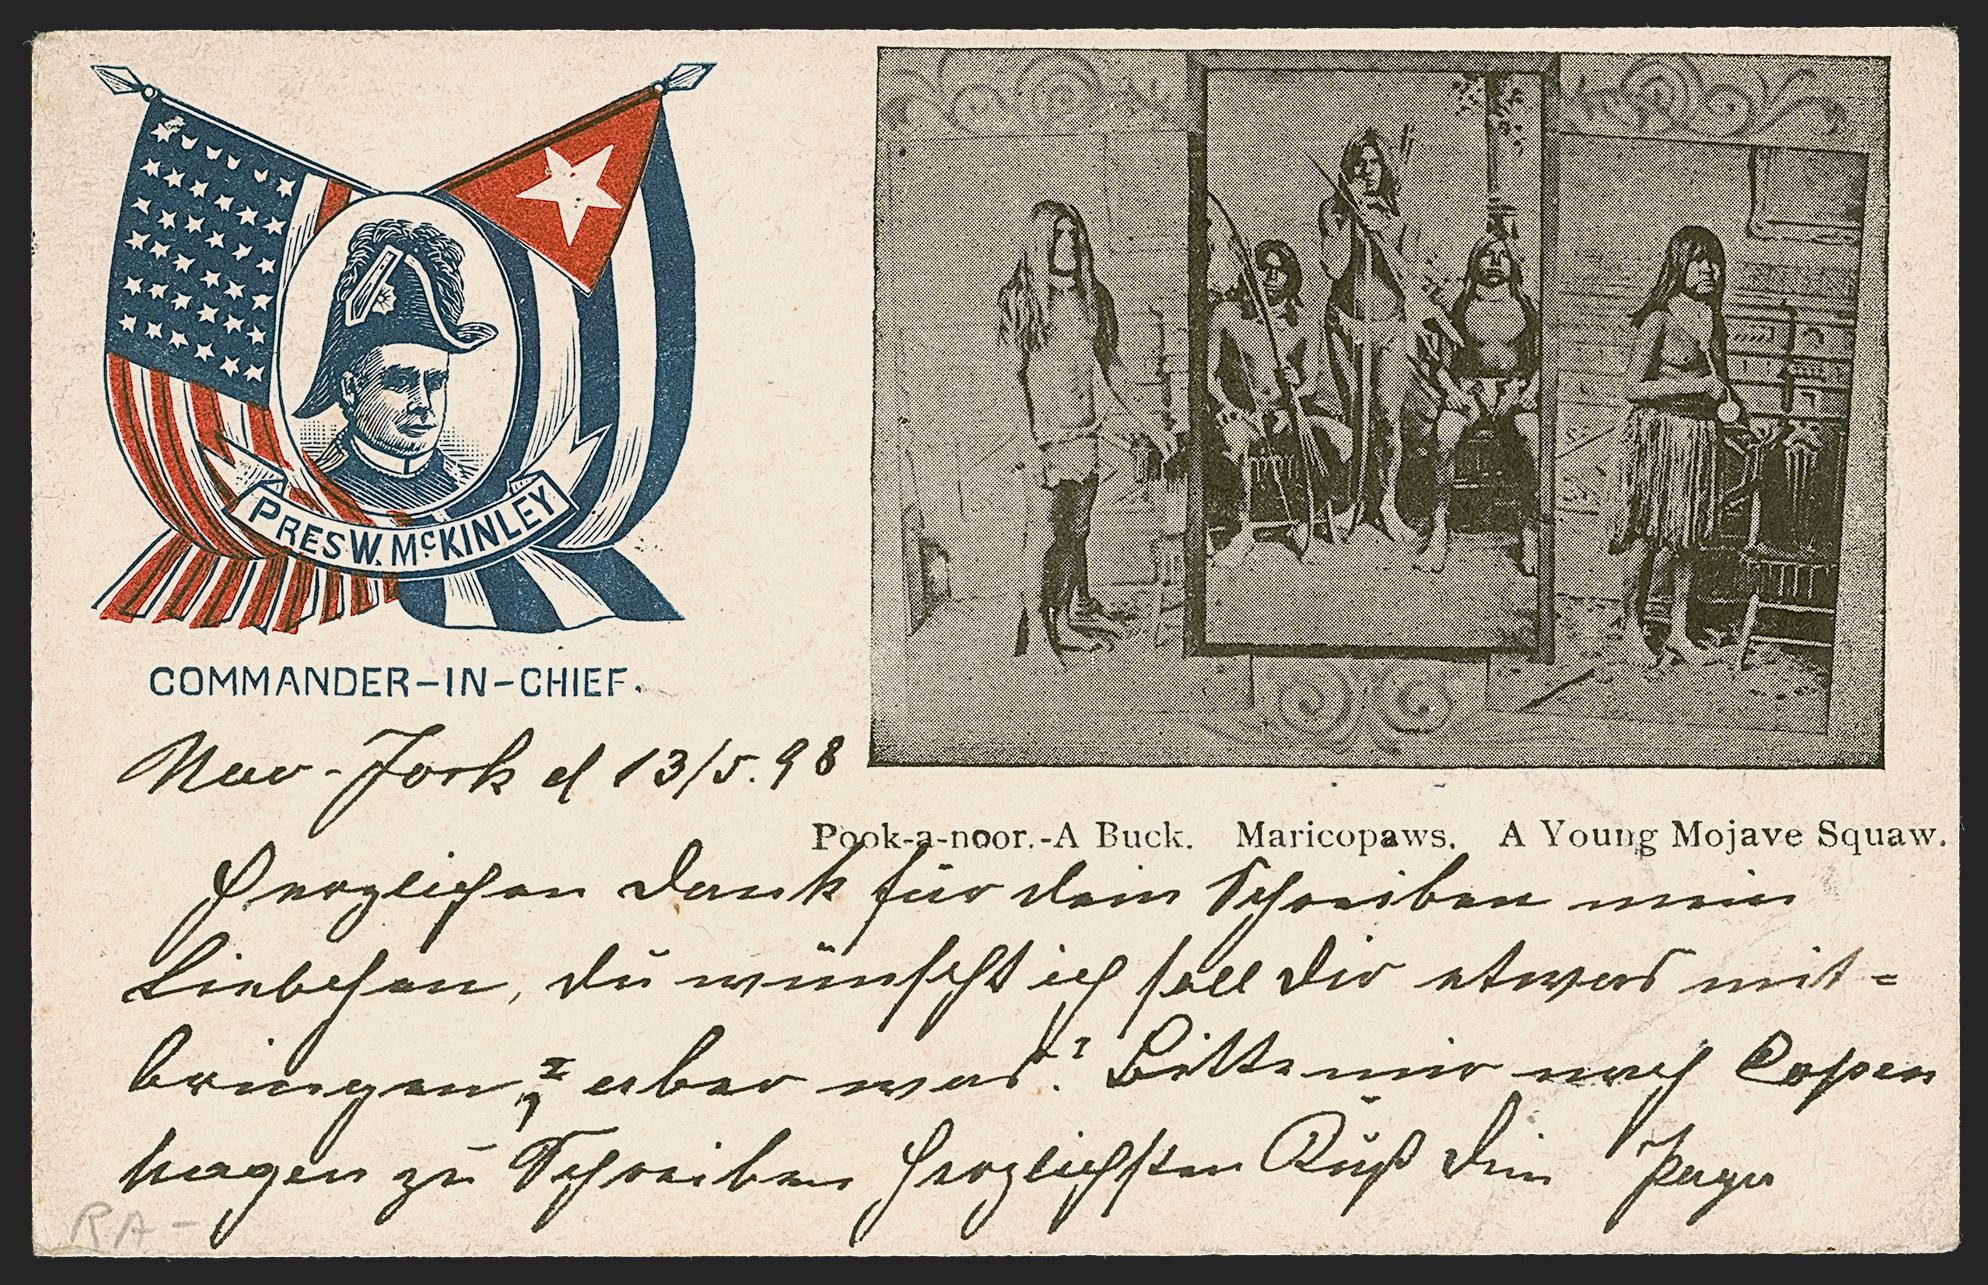 PRES W. McKINLEY
COMMANDER-IN-CHIEF.
Pook-a-noor.-A Buck. Maricopaws. A Young Mojave Squaw.
New-York d 13/5. 98
Herzlichen Dank für dein Schreiben mein
Liebchen, du wünschst ich soll Dir etwas mit=
bringen, aber was? Bitte mir nach Copen
hagen zu Schreiben herzlichsten Kuß Dein Papa
RA-